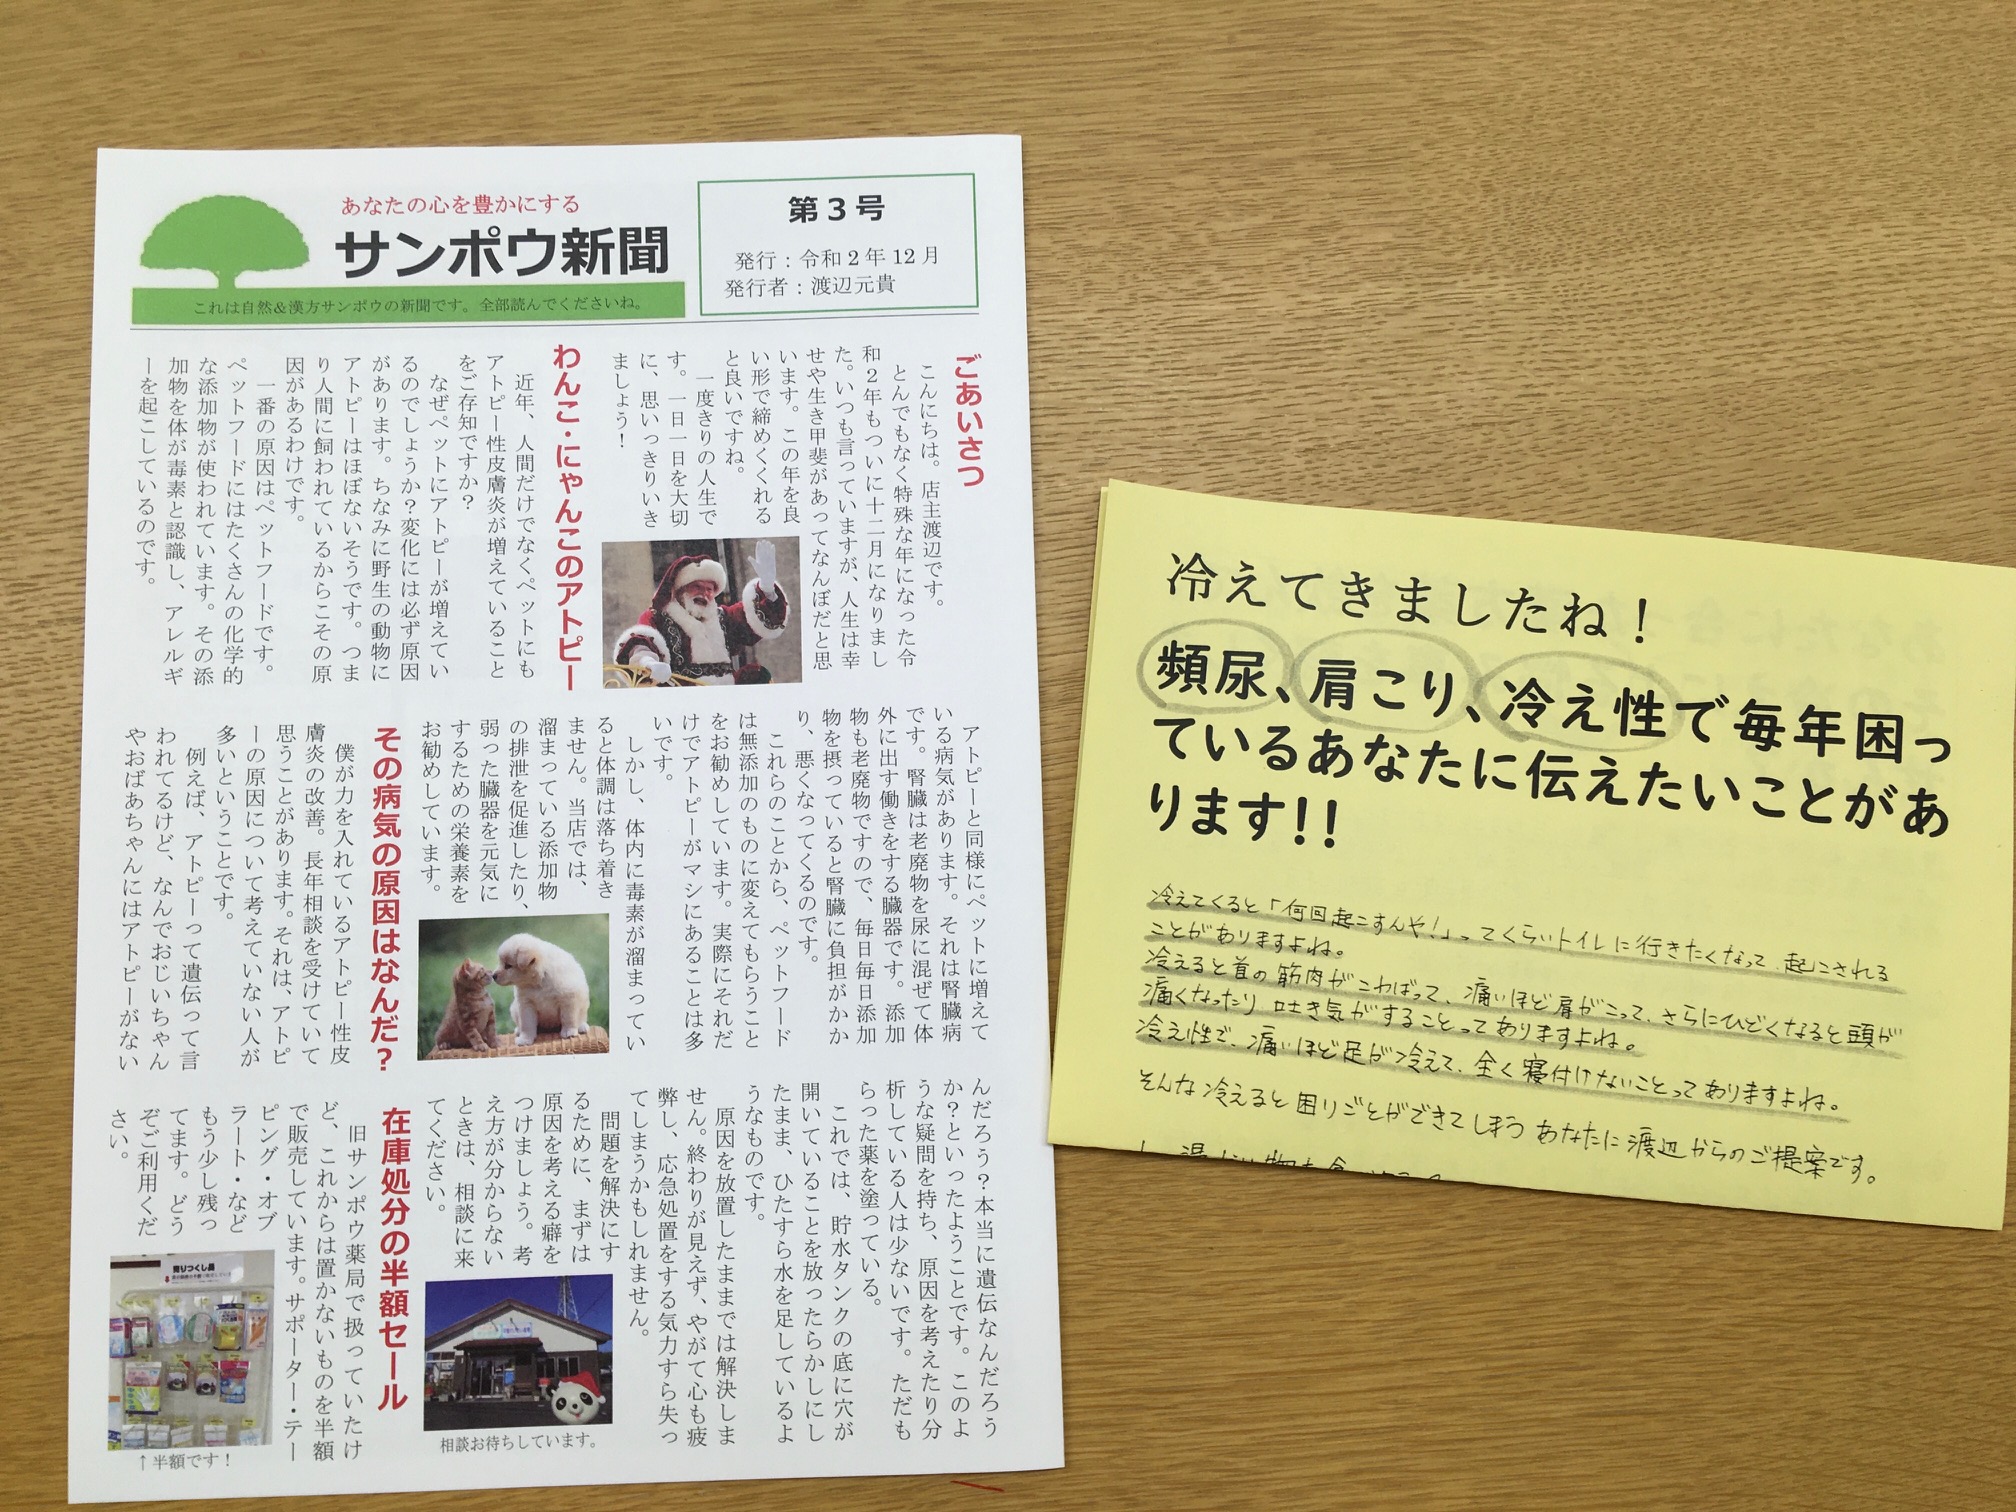 あなたの心を豊かにする
サンポウ新聞
これは自然＆漢方サンポウの新聞です。全部読んでくださいね。
第３号
発行：令和２年12月
発行者：渡辺元貴
ごあいさつ
こんにちは。店主渡辺です。
とんでもなく特殊な年になった令
和２年もついに十二月になりまし
た。いつも言っていますが、人生は幸
せや生き甲斐があってなんぼだと思
います。この年を良
い形で締めくくれる
と良いですね。
一度きりの人生で
す。一日一日を大切
に、思いっきりいき
ましょう！
わんこ・にゃんこのアトピー
近年、人間だけでなくペットにも
アトピー性皮膚炎が増えていること
をご存知ですか？
なぜペットにアトピーが増えてい
るのでしょうか？変化には必ず原因
があります。ちなみに野生の動物に
アトピーはほぼないそうです。つま
り人間に飼われているからこその原
因があるわけです。
一番の原因はペットフードです。
ペットフードにはたくさんの化学的
な添加物が使われています。その添
加物を体が毒素と認識し、アレルギ
ーを起こしているのです。
アトピーと同様にペットに増えて
いる病気があります。それは腎臓病
です。腎臓は老廃物を尿に混ぜて体
外に出す働きをする臓器です。添加
物も老廃物ですので、毎日毎日添加
物を摂っていると腎臓に負担がかか
り、悪くなってくるのです。
これらのことから、ペットフード
は無添加のものに変えてもらうこと
をお勧めしています。実際にそれだ
けでアトピーがマシにあることは多
いです。
しかし、体内に毒素が溜まってい
ると体調は落ち着き
ません。当店では、
溜まっている添加物
の排泄を促進したり、
弱った臓器を元気に
するための栄養素を
お勧めしています。
その病気の原因はなんだ？
僕が力を入れているアトピー性皮
膚炎の改善。長年相談を受けていて
思うことがあります。それは、アトピ
ーの原因について考えていない人が
多いということです。
例えば、アトピーって遺伝って言
われてるけど、なんでおじいちゃん
やおばあちゃんにはアトピーがない
んだろう？本当に遺伝なんだろう
か？といったようことです。このよ
うな疑問を持ち、原因を考えたり分
析している人は少ないです。ただも
らった薬を塗っている。
これでは、貯水タンクの底に穴が
開いていることを放ったらかしにし
たまま、ひたすら水を足しているよ
うなものです。
原因を放置したままでは解決しま
せん。終わりが見えず、やがて心も疲
弊し、応急処置をする気力すら失っ
てしまうかもしれません。
問題を解決にす
るために、まずは
原因を考える癖を
つけましょう。考
え方が分からない
ときは、相談に来
てください。
相談お待ちしています。
在庫処分の半額セール
旧サンポウ薬局で扱っていたけ
ど、これからは置かないものを半額
で販売しています。サポーター・テー
ピング・オブ
ラート・など
もう少し残っ
てます。どう
ぞご利用くだ
さい。
売りつくし品
↑半額です！
冷えてきましたね！
頻尿、肩こり、冷え性で毎年困っ
ているあなたに伝えたいことがあ
ります！！
冷えてくると「何回起こすんや！」ってくらいトイレに行きたくなって、起こされる
ことがありますよね。
冷えると首の筋肉がこわばって、痛いほど肩がこって、さらにひどくなると頭が
痛くなったり、吐き気がすることってありますよね。
冷え性で、痛いほど足が冷えて、全く寝付けないことってありますよね。
そんな冷えると困りごとができてしまうあなたに渡辺からのご提案です。